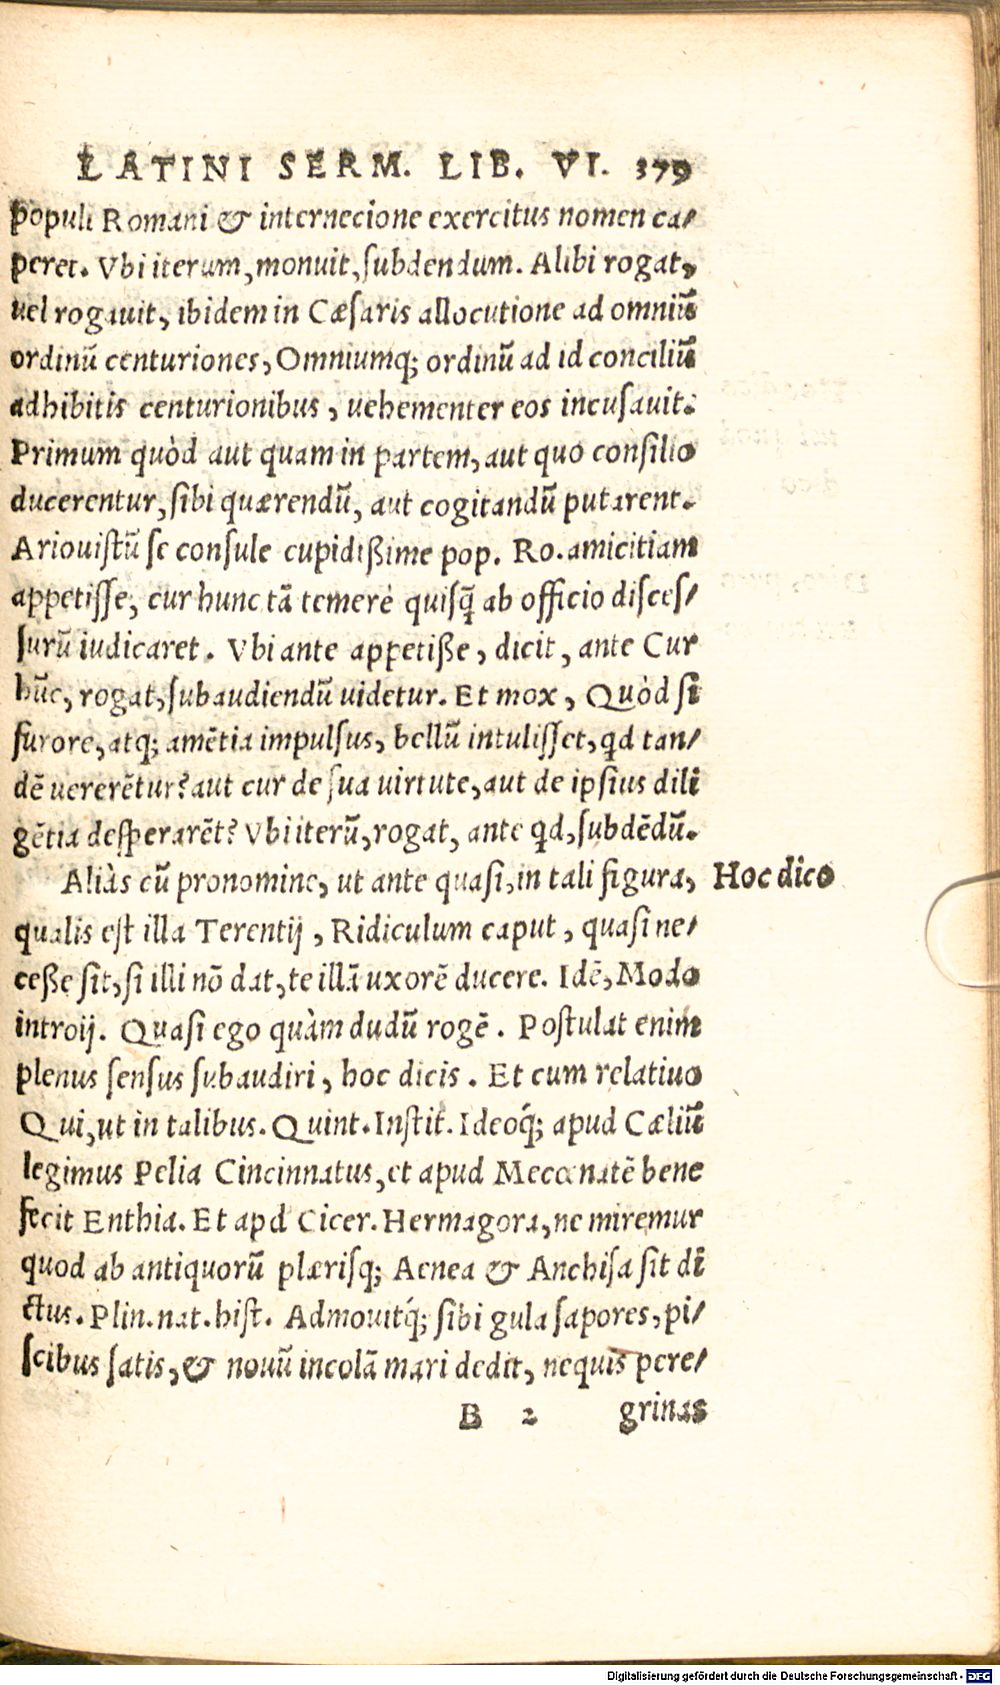 LATINI SERM. LIB. VI. 379
populi Romani & internecione exercitus nomen ca/
peret. Vbi iterum, monuit, subdendum. Alibi rogat,
uel rogauit, ibidem in Cæsaris allocutione ad omniũ
ordinũ centuriones, Omniumq; ordinũ ad id conciliũ
adhibitis centurionibus, uehementer eos incusauit:
Primum quòd aut quam in partem, aut quo consilio
ducerentur, sibi quærendũ, aut cogitandũ putarent.
Ariouistũ se consule cupidißime pop. Ro. amicitiam
appetisse, cur hunc tã temerè quisq̃ ab officio disces/
surũ iudicaret. Vbi ante appetiße, dicit, ante Cur
hũc, rogat, subaudiendũ uidetur. Et mox, Quòd si
furore, atq; amẽtia impulsus, bellũ intulisset, qd tan/
dẽ uererẽtur? aut cur de sua uirtute, aut de ipsius dili
gẽtia desperarẽt? Vbi iterũ, rogat, ante qd, subdẽdũ.
Aliàs cũ pronomine, ut ante quasi, in tali figura,
Hoc dico
qualis est illa Terentij, Ridiculum caput, quasi ne/
ceße sit, si illi nõ dat, te illã uxorẽ ducere. Idẽ, Modo
introij. Quasi ego quàm dudũ rogẽ. Postulat enim
plenus sensus subaudiri, hoc dicis. Et cum relatiuo
Qui, ut in talibus. Quint. Instit. Ideoq́; apud Cæliũ
legimus Pelia Cincinnatus, et apud Mecœnatẽ bene
fecit Enthia. Et apd Cicer. Hermagora, ne miremur
quod ab antiquorũ plærisq; Aenea & Anchisa sit di
ctus. Plin. nat. hist. Admouitq́; sibi gula sapores, pi/
scibus satis, & nouũ incolã mari dedit, nequis pere/
B 2 grinas
Digitalisierung gefördert durch die Deutsche Forschungsgemeinschaft - DFG